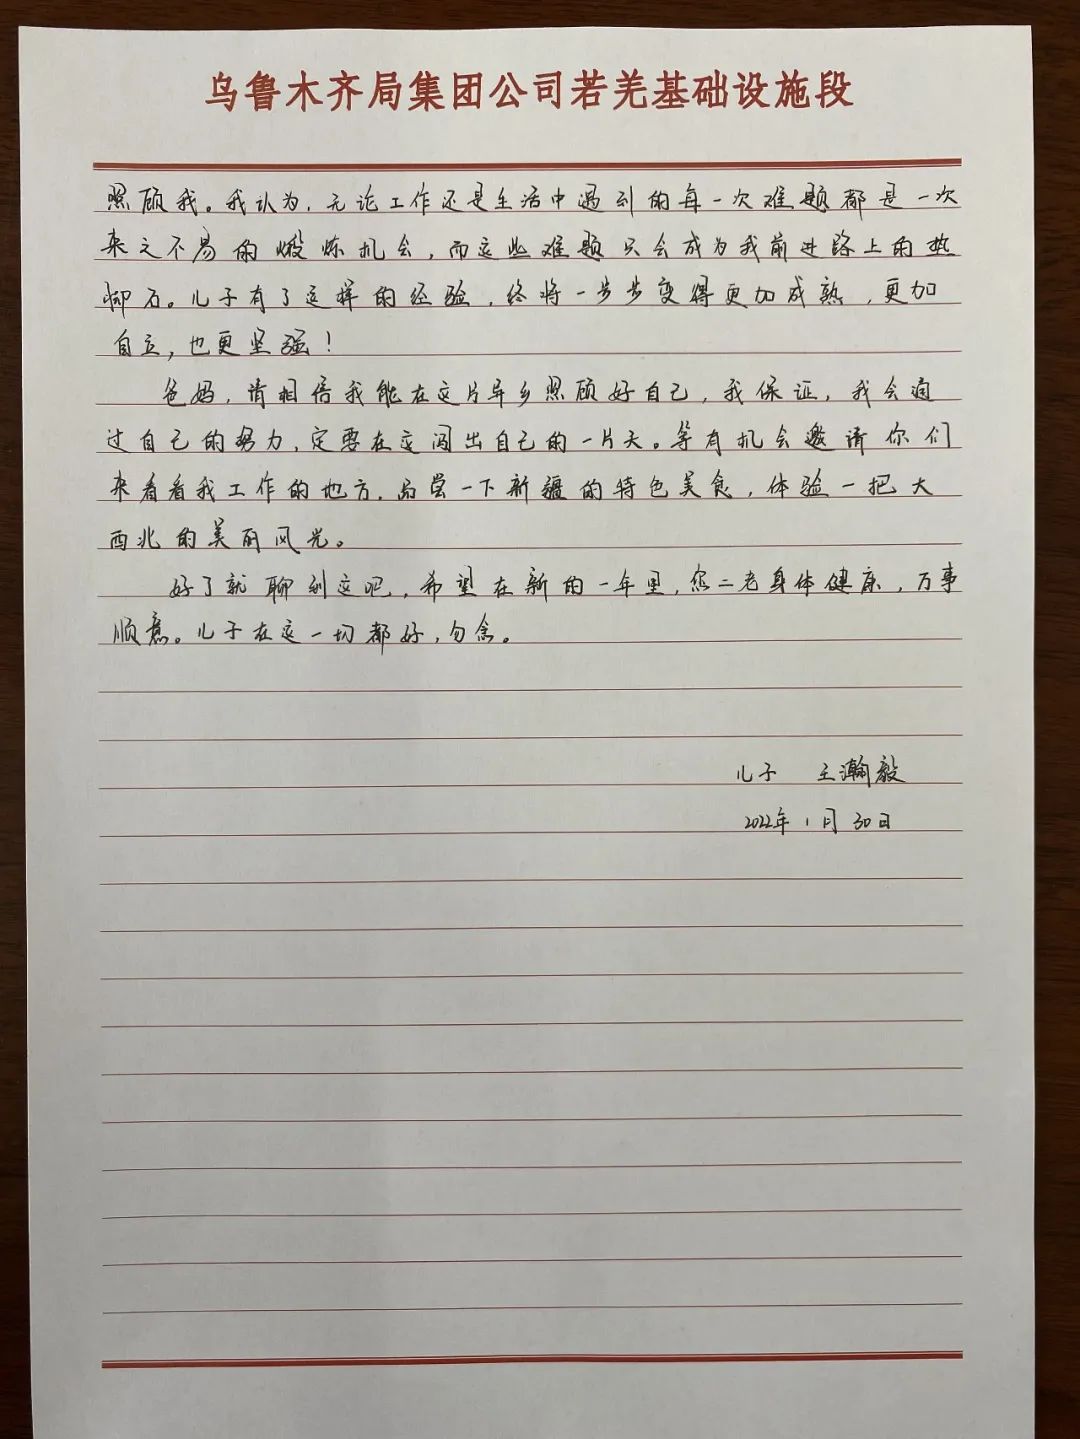 乌鲁木齐局集团公司若羌基础设施段
照顾我。我认为，无论工作还是生活中遇到的每一次难题都是一次
来之不易的煅炼机会，而这些难题只会成为我前进路上的垫
脚石。儿子有了这样的经验，终将一步步变得更加成熟，更加
自立，也更坚强！
爸妈，请相信我能在这片异乡照顾好自己，我保证，我会通
过自己的努力，定要在这闯出自己的一片天。等有机会邀请你们
来看看我工作的地方，品尝一下新疆的特色美食，体验一把大
西北的美丽风光。
好了就聊到这吧，希望在新的一年里，您二老身体健康，万事
顺意。儿子在这一切都好，勿念。
儿子 王瀚毅
2022年1月30日